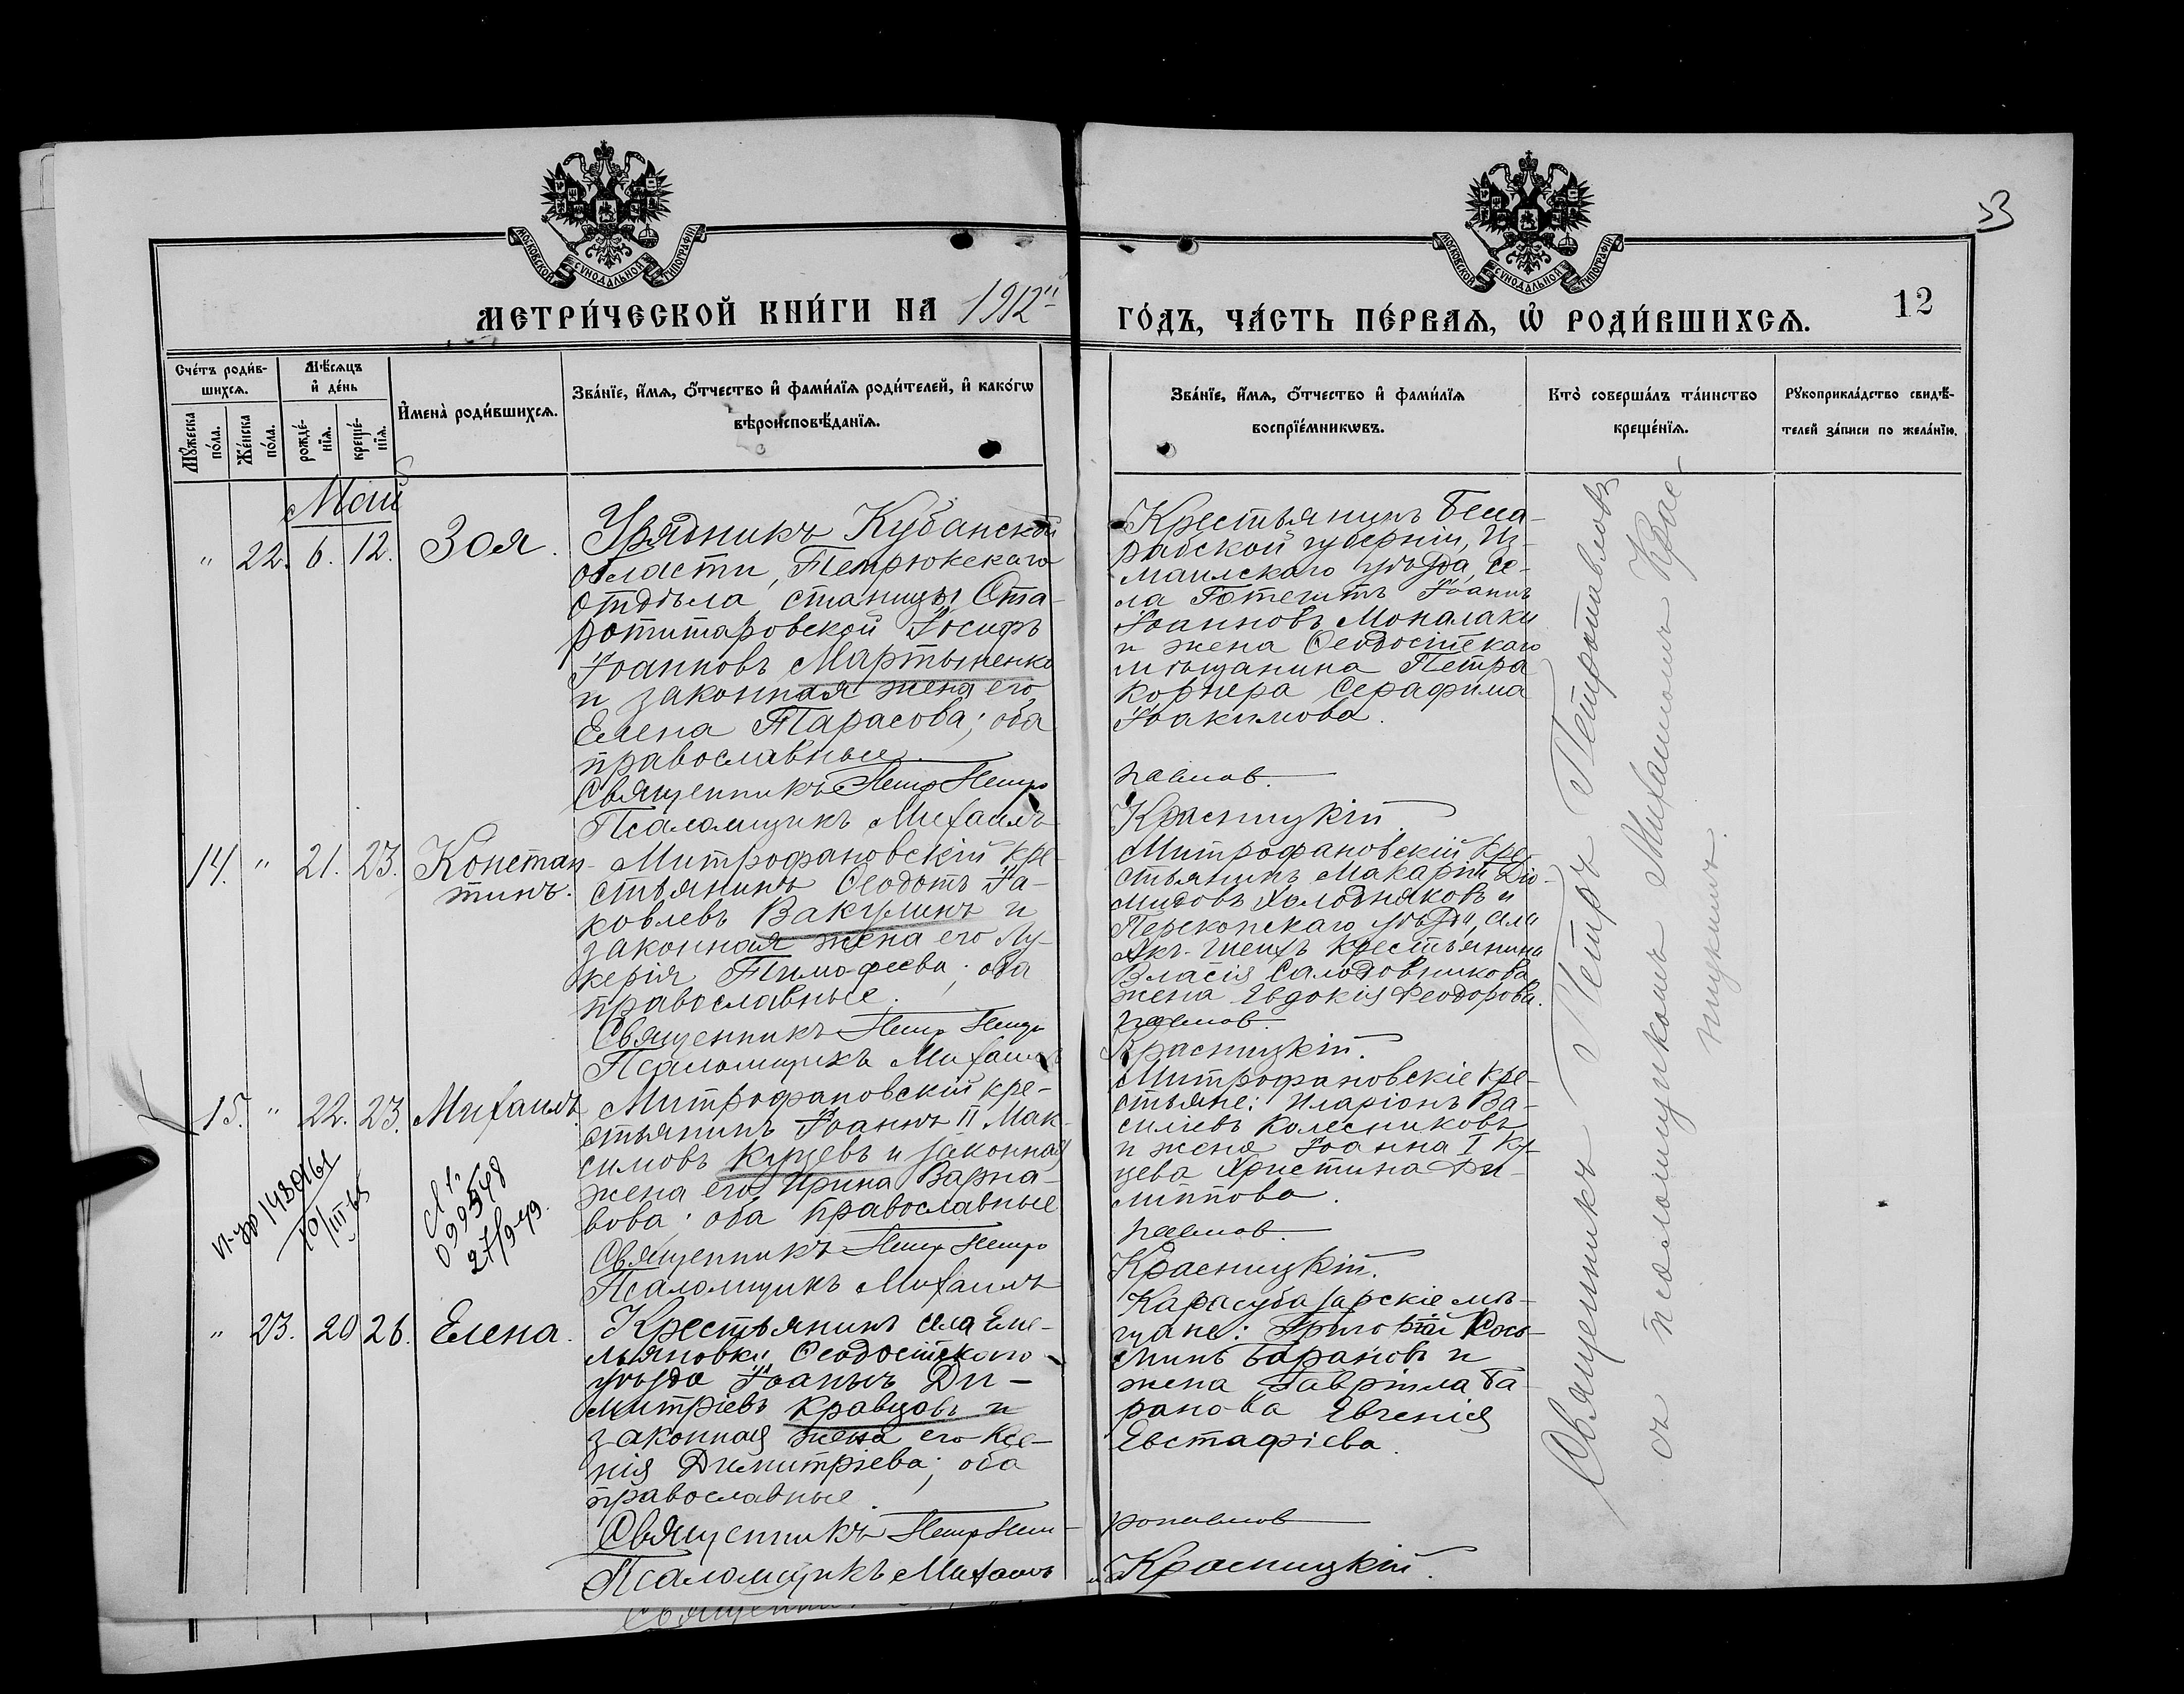 МОСКОВСКОЙ СѴНОДАЛЬНОЙ ТИПОГРАФІИ
МОСКОВСКОЙ СѴНОДАЛЬНОЙ ТИПОГРАФІИ
МЕТРИ́ЧЕСКОЙ КНИ́ГИ НА 1912й
ГО́ДЪ, ЧА́СТЬ ПЕ́РВАѦ, Ѡ҆ РОДИ́ВШИХСѦ.
12
Сче́тъ роди́в-
шихсѧ.
Мꙋ́жеска по́ла.
Же́нска по́ла.
Мѣ́сѧцъ
и҆ де́нь
рожде́-
нїѧ.
креще́-
нїѧ.
И҆мена̀ роди́вшихсѧ.
Зва́нїе, и҆́мѧ, ѻ҆́тчество и҆ фами́лїѧ роди́телей, и҆ како́гѡ
вѣроисповѣ́данїѧ.
Зва́нїе, и҆́мѧ, ѻ҆́тчество и҆ фами́лїѧ
воспрїе́мникѡвъ.
Кто̀ соверша́лъ та́инство
креще́нїѧ.
Рꙋкоприкла́дство свидѣ́-
телей за́писи по жела́нїю.
Май
" 22. 6. 12. Зоя.
Урядникъ Кубанской
области, Темрюкскаго
отдѣла, станицы Ста-
ротитаровской Іосифъ
Іоанновъ Мартыненко
и законная жена его
Елена Тарасова; оба
православные.
Священникъ Петр Петро
Псаломщикъ Михаилъ
Крестьянинъ Бесса-
рабской губерніи, Из-
маилскаго уѣзда, се-
ла Іоаннъ
Іоанновъ Мокалаки
и жена Ѳеодосійскаго
мѣщанина Петра
Корнера Серафима
Іоакимова.
павлов.
Красницкій.
14. " 21. 23. Констан-
тинъ.
Митрофановскій кре-
стьянинъ Ѳеодотъ Іа-
ковлевъ Вакулинъ и
законная жена его Лу-
керія Тимофеева; оба
православные.
Священникъ Петр Петро
Псаломщикъ Михаилъ
Митрофановскій кре-
стьянинъ Макарій Діо-
мидовъ Холодняковъ и
Перекопскаго уѣзда, села
крестьянина
Власія Салодовникова
жена Евдокія Феодорова.
павлов.
Красницкій.
15. " 22. 23. Михаилъ.
Митрофановскій кре-
стьянинъ Іоаннъ II Мак-
симовъ Куцевъ и законная
жена его Ирина Варна-
вова; оба православные
Священникъ Петр Петро
Псаломщикъ Михаилъ
Митрофановскіе кре-
стьяне: Иларіонъ Ва-
силіевъ Колесниковъ
и жена Іоанна I Ку-
цева Христина Фи-
липпова.
павлов.
Красницкій.
" 23. 20 26. Елена.
Крестьянинъ села Еме-
льяновки Ѳеодосійскаго
уѣзда Іоаннъ Ди-
митріевъ Кравцовъ и
законная жена его Ксе-
нія Димитріева; оба
православные.
Священникъ Петр Пет-
Псаломщикъ Михаилъ
Карасубазарскіе мѣ-
щане: Григорій Кось-
минъ Барановъ и
жена Гавріила Ба-
ранова Евгенія
Евстафіева.
ропавлов
Красницкій.
Священникъ Петръ Петропавловъ
съ псаломщикомъ Михаиломъ Крас-
ницкимъ.